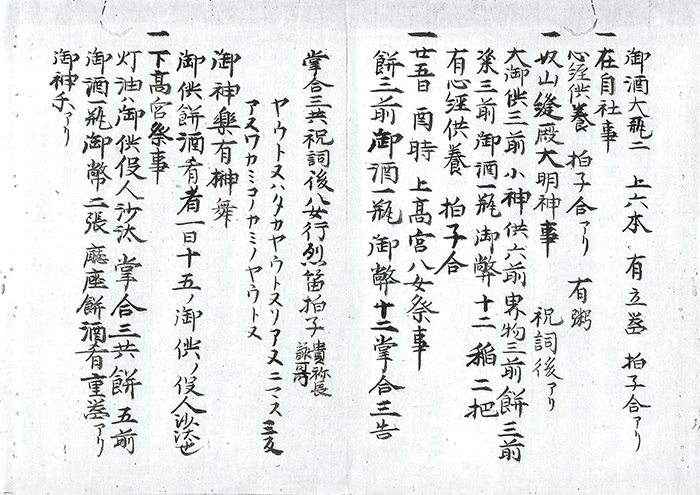 御酒大瓶二　上六本　有立盃　拍子合アリ
一在自社事
心経供養　拍子合アリ　有粥
一奴山縫殿大明神事　祝詞後アリ
大御供三前小神供六前界物三前餅三前
粢三前御酒一瓶御幣十二稲二把
有心経供養　拍子合
一廿五日酉時上高宮八女祭事
餅三前御酒一瓶御幣十二掌合三告
掌合三共祝詞後八女行烈笛拍子
ヤウトヌハタカヤウトヌリアヌニマス三反
アヌワカミコノカミノヤウトヌ
御神楽有榊舞
御供餅酒肴者一日十五ノ御供ノ役人沙汰也
一下高宮祭事
灯油ハ御供役人沙汰掌合三共餅五前
御酒一瓶御幣二張廳座餅酒肴重盃アリ
御神手アリ